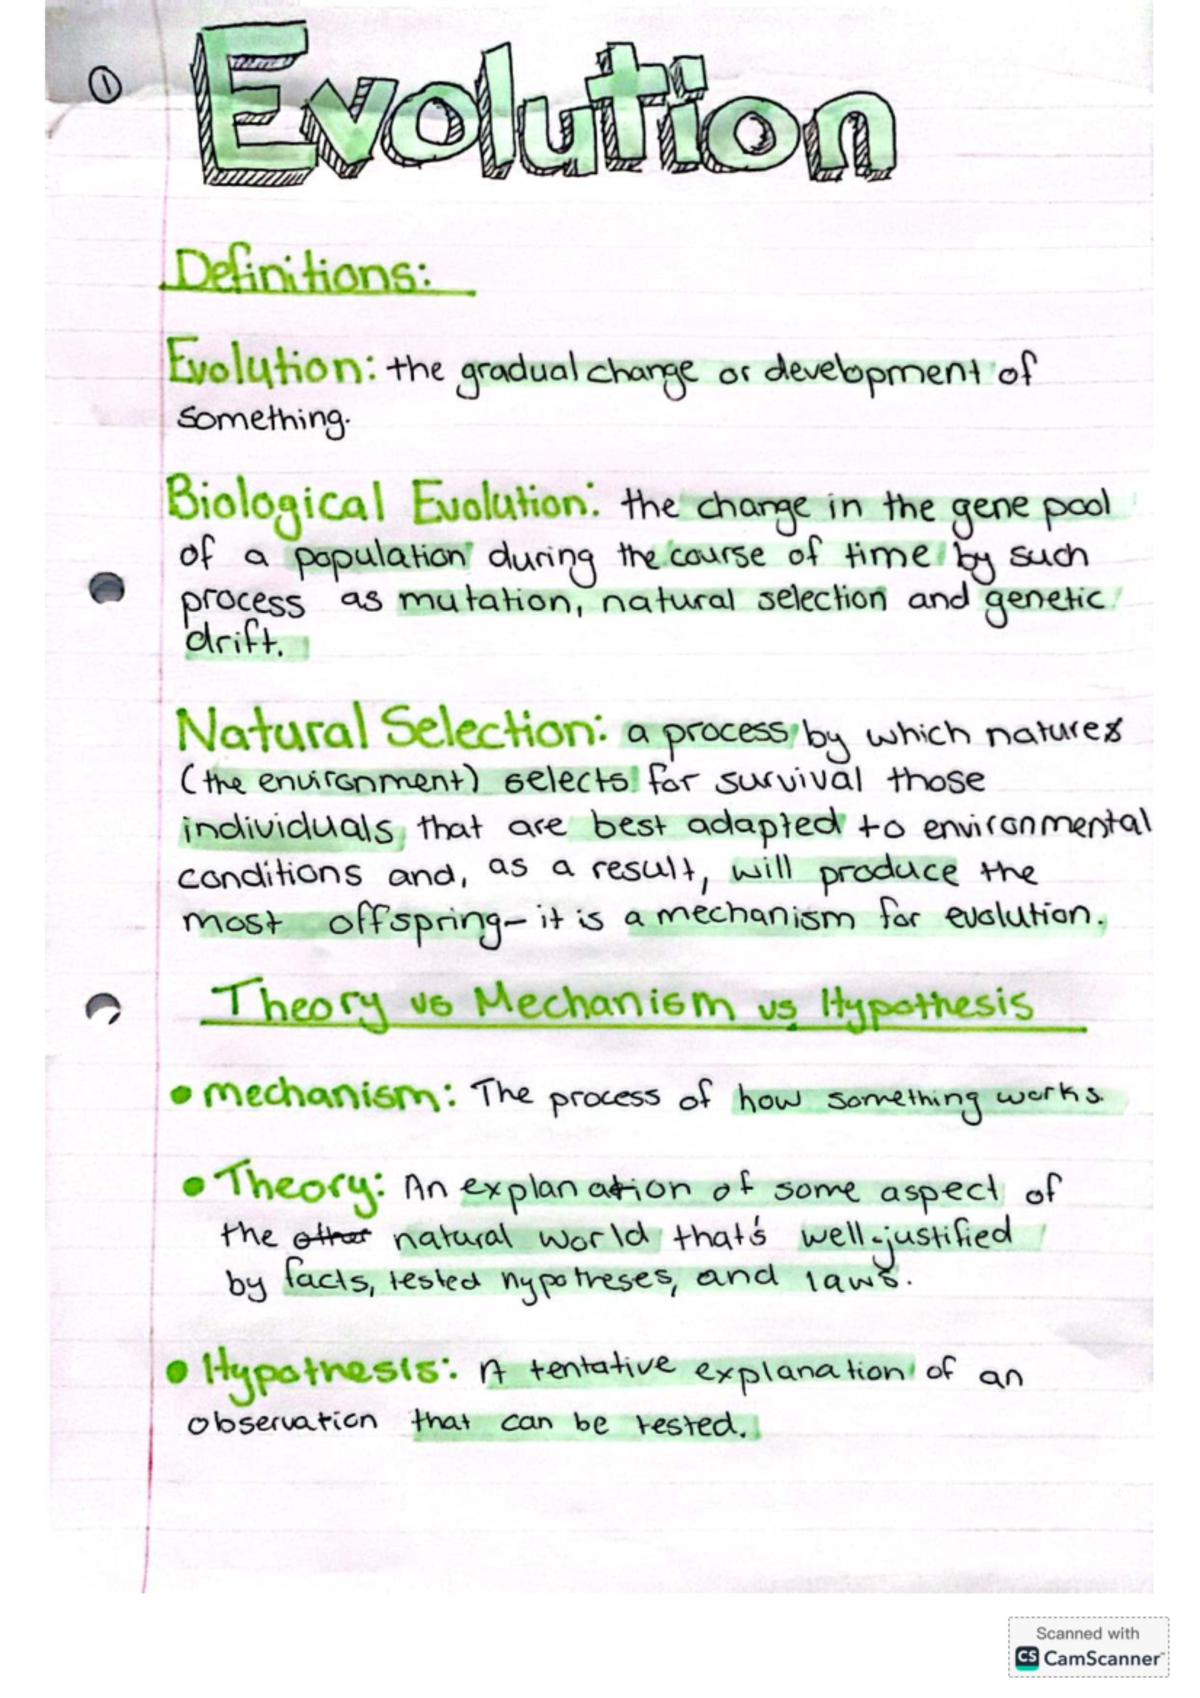 ①
Evolution
Definitions:
Evolution: the gradual change or development of
something.
Biological Evolution: the change in the gene pool
of a population during the course of time by such
process as mutation, natural selection and genetic
drift.
Natural Selection: a process by which natures
(the environment) selects for survival those
individuals that are best adapted to environmental
conditions and, as a result, will produce the
most offspring – it is a mechanism for evolution.
Theory vs Mechanism vs Hypothesis
• mechanism: The process of how something works.
• Theory: An explanation of some aspect of
the other natural world that's well-justified
by facts, tested hypotheses, and laws.
• Hypothesis: A tentative explanation of an
observation that can be tested.
Scanned with
CS CamScanner